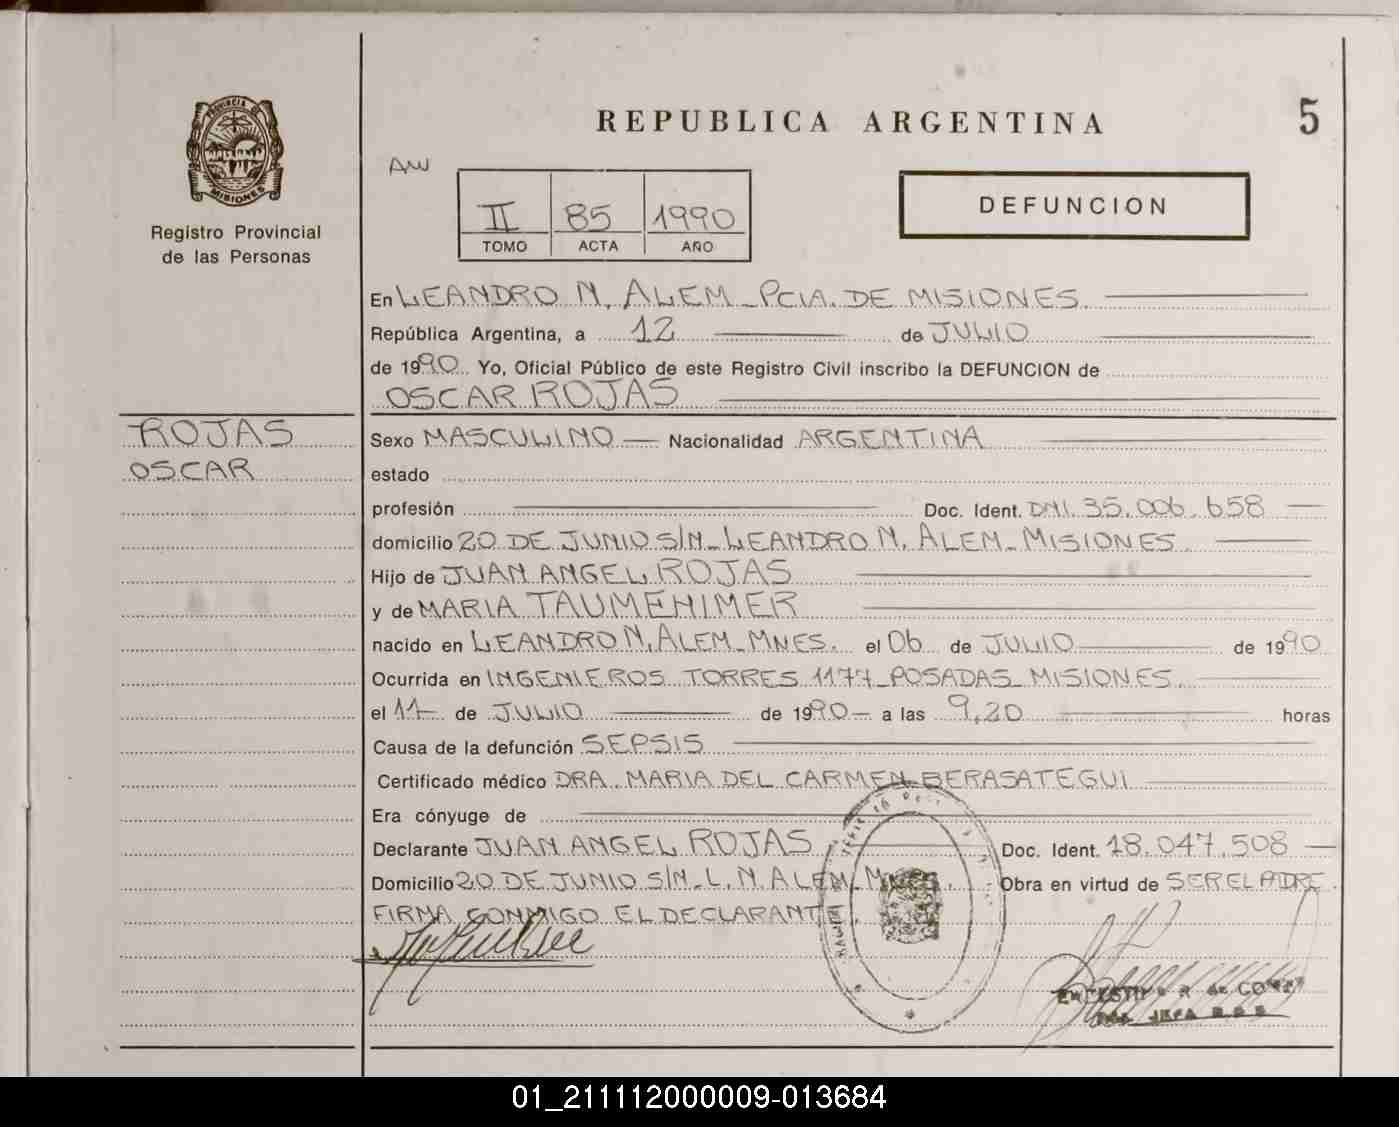 PROVINCIA DE
MISIONES
Registro Provincial
de las Personas
REPUBLICA ARGENTINA
5
AW
II 85 1990
TOMO ACTA AÑO
DEFUNCION
En LEANDRO N. ALEM_PCIA. DE MISIONES
República Argentina, a 12 de JULIO
de 1990 Yo, Oficial Público de este Registro Civil inscribo la DEFUNCION de
OSCAR ROJAS
ROJAS
OSCAR
Sexo MASCULINO Nacionalidad ARGENTINA
estado
profesión Doc. Ident. DNI. 35.006.658
domicilio 20 DE JUNIO S/N_LEANDRO N. ALEM_MISIONES
Hijo de JUAN ANGEL ROJAS
y de MARIA TAUMEHIMER
nacido en LEANDRO N. ALEM_MNES. el 06 de JULIO de 1990
Ocurrida en INGENIEROS TORRES 1177_POSADAS_MISIONES
el 11 de JULIO de 1990 a las 9,20 horas
Causa de la defunción SEPSIS
Certificado médico DRA. MARIA DEL CARMEN BERASATEGUI
Era cónyuge de
Declarante JUAN ANGEL ROJAS Doc. Ident. 18.047.508
Domicilio 20 DE JUNIO S/N_L. N. ALEM_ Obra en virtud de SER EL PADRE.
FIRMA CONMIGO EL DECLARANTE.
01_211112000009-013684